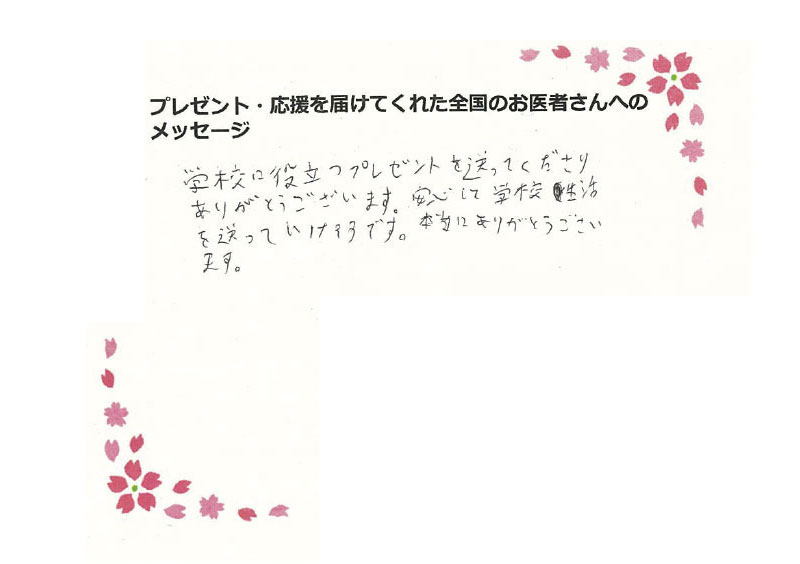 プレゼント・応援を届けてくれた全国のお医者さんへの
メッセージ
学校に役立つプレゼントを送ってくださり
ありがとうございます。安心して学校性活
を送っていけそうです。本当にありがとうござい
ます。